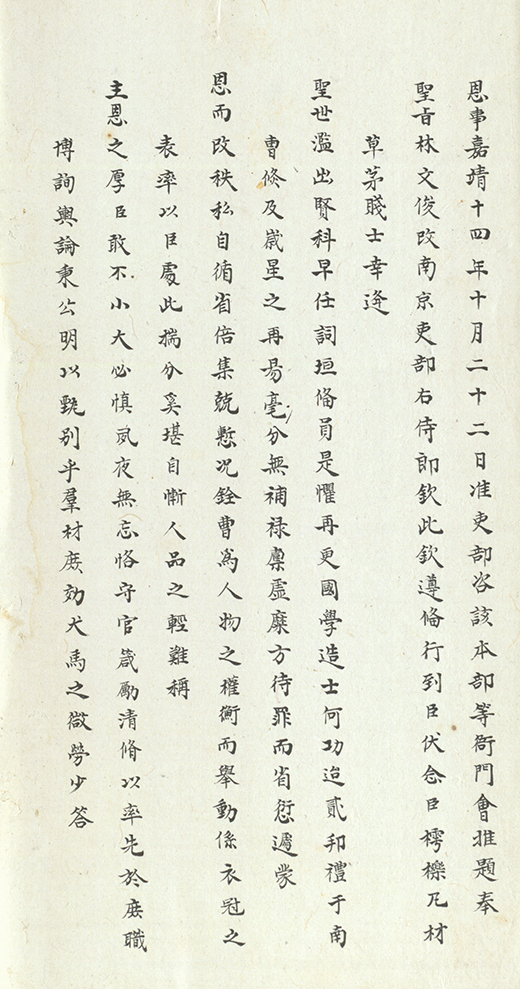 恩事嘉靖十四年十月二十二日准吏部咨該本部等衙門會推題奉
聖旨林文俊改南京吏部右侍郎欽此欽遵備行到臣伏念臣樗櫟凡材
草茅賤士幸逢
聖世濫出賢科早任詞垣備員是懼再更國學造士何功迨貳邦禮于南
曹倏及嵗星之再易毫分無補禄廩虛糜方待罪而省愆遽蒙
恩而改秩私自循省倍集兢慙况銓曹爲人物之權衡而舉動係衣冠之
表率以臣處此揣分奚堪自慚人品之輕難稱
主恩之厚臣敢不小大必慎夙夜無忘恪守官箴勵清脩以率先於庶職
博詢輿論秉公明以甄别乎羣材庶効犬馬之微勞少答